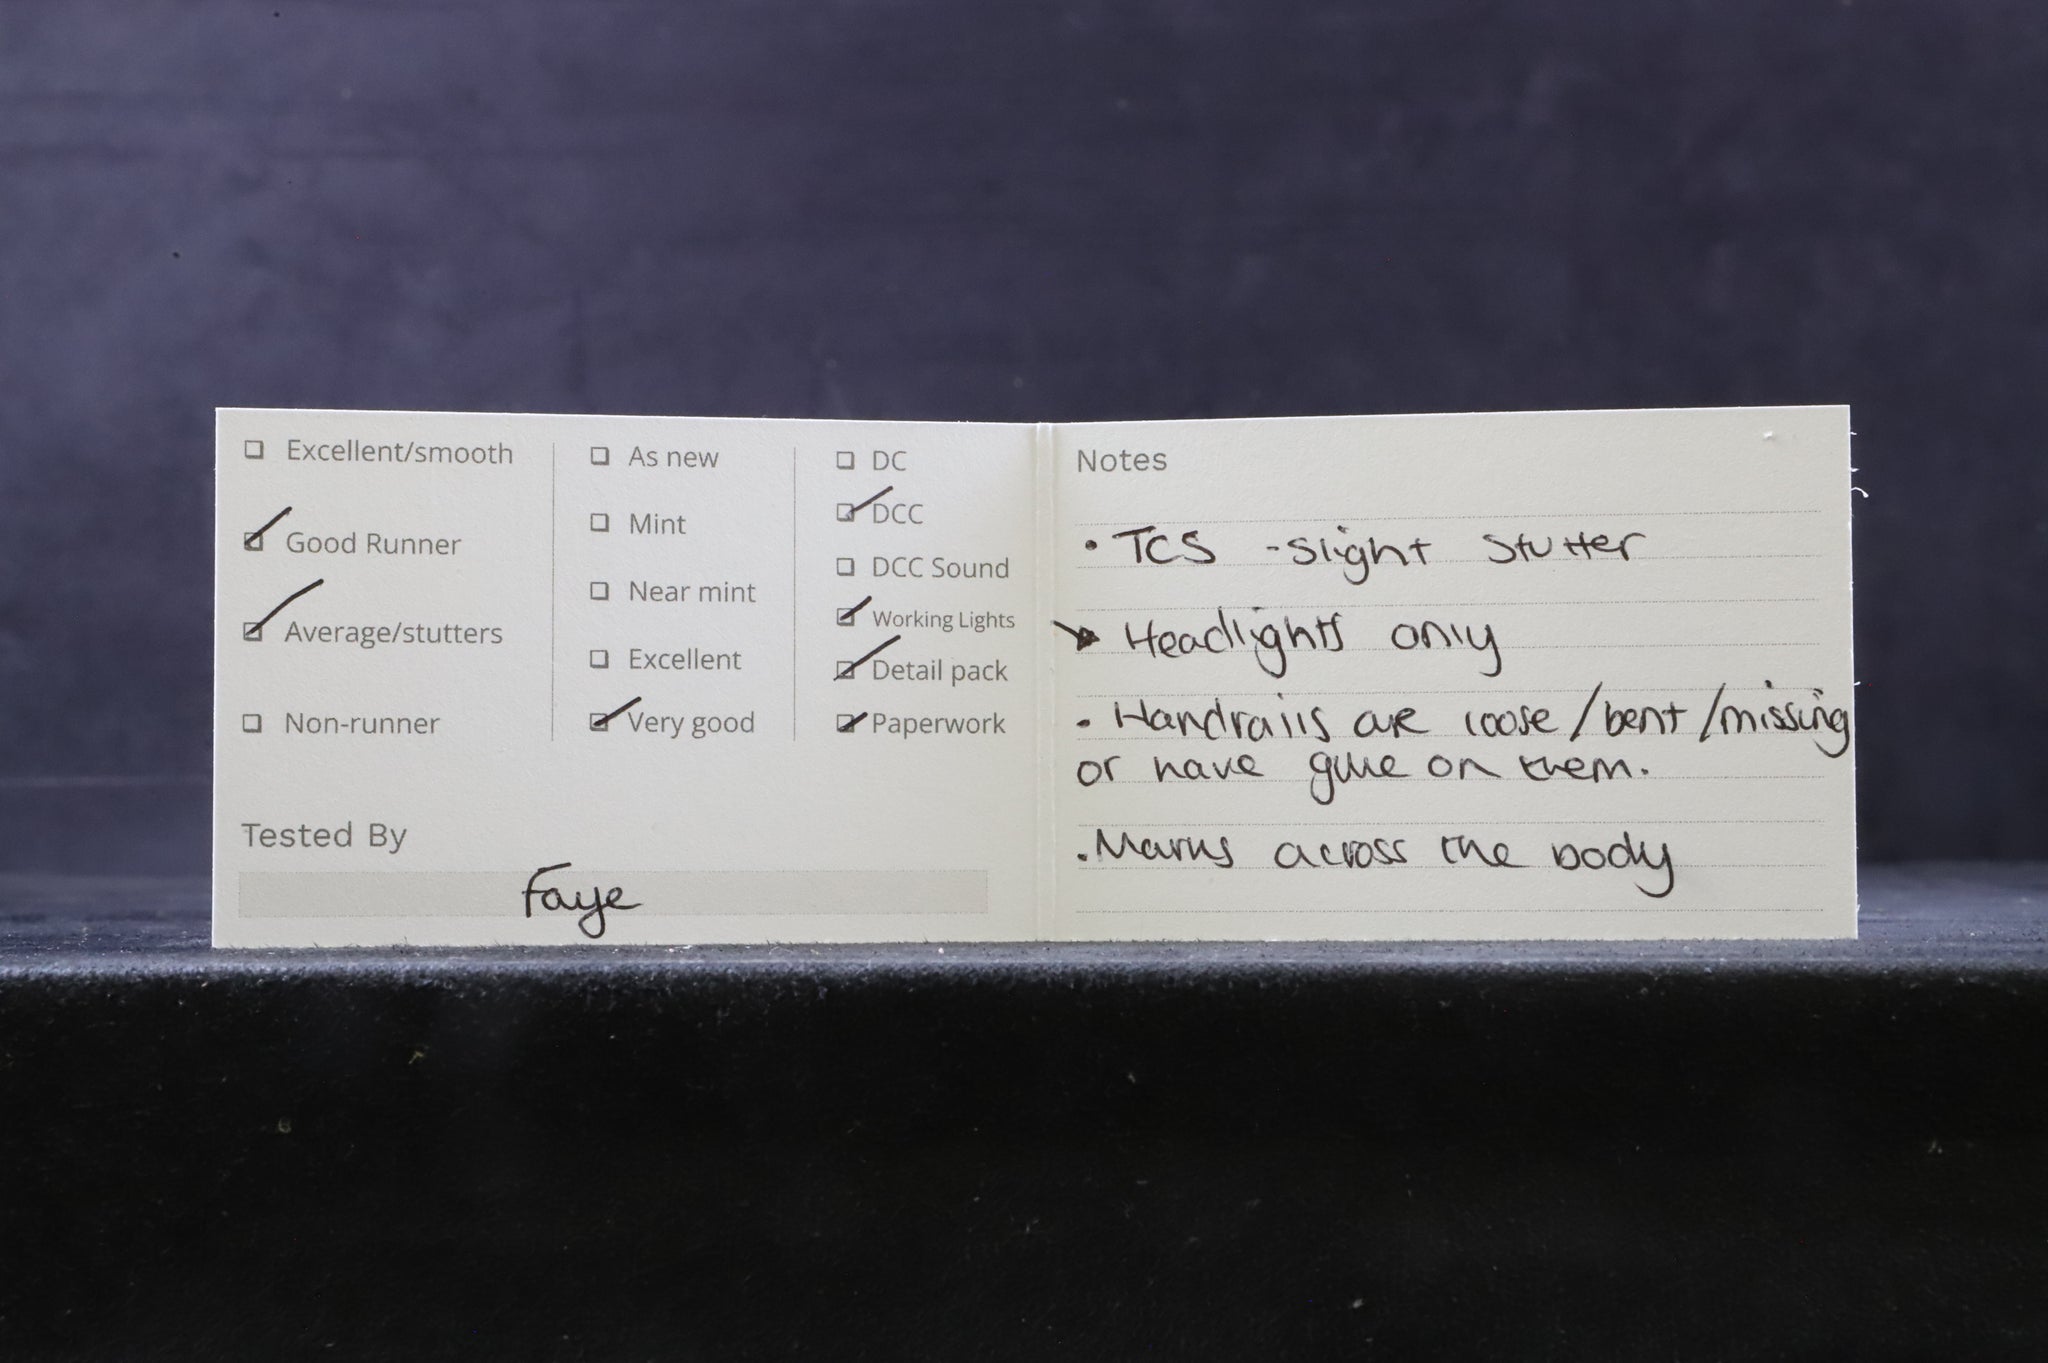 Excellent/smooth
Good Runner
Average/stutters
Non-runner
As new
Mint
Near mint
Excellent
Very good
DC
DCC
DCC Sound
Working Lights
Detail pack
Paperwork
Tested By
Faye
Notes
• TCS - Slight Stutter
Headlights only
• Handrails are loose/bent/missing
or have glue on them.
• Marks across the body